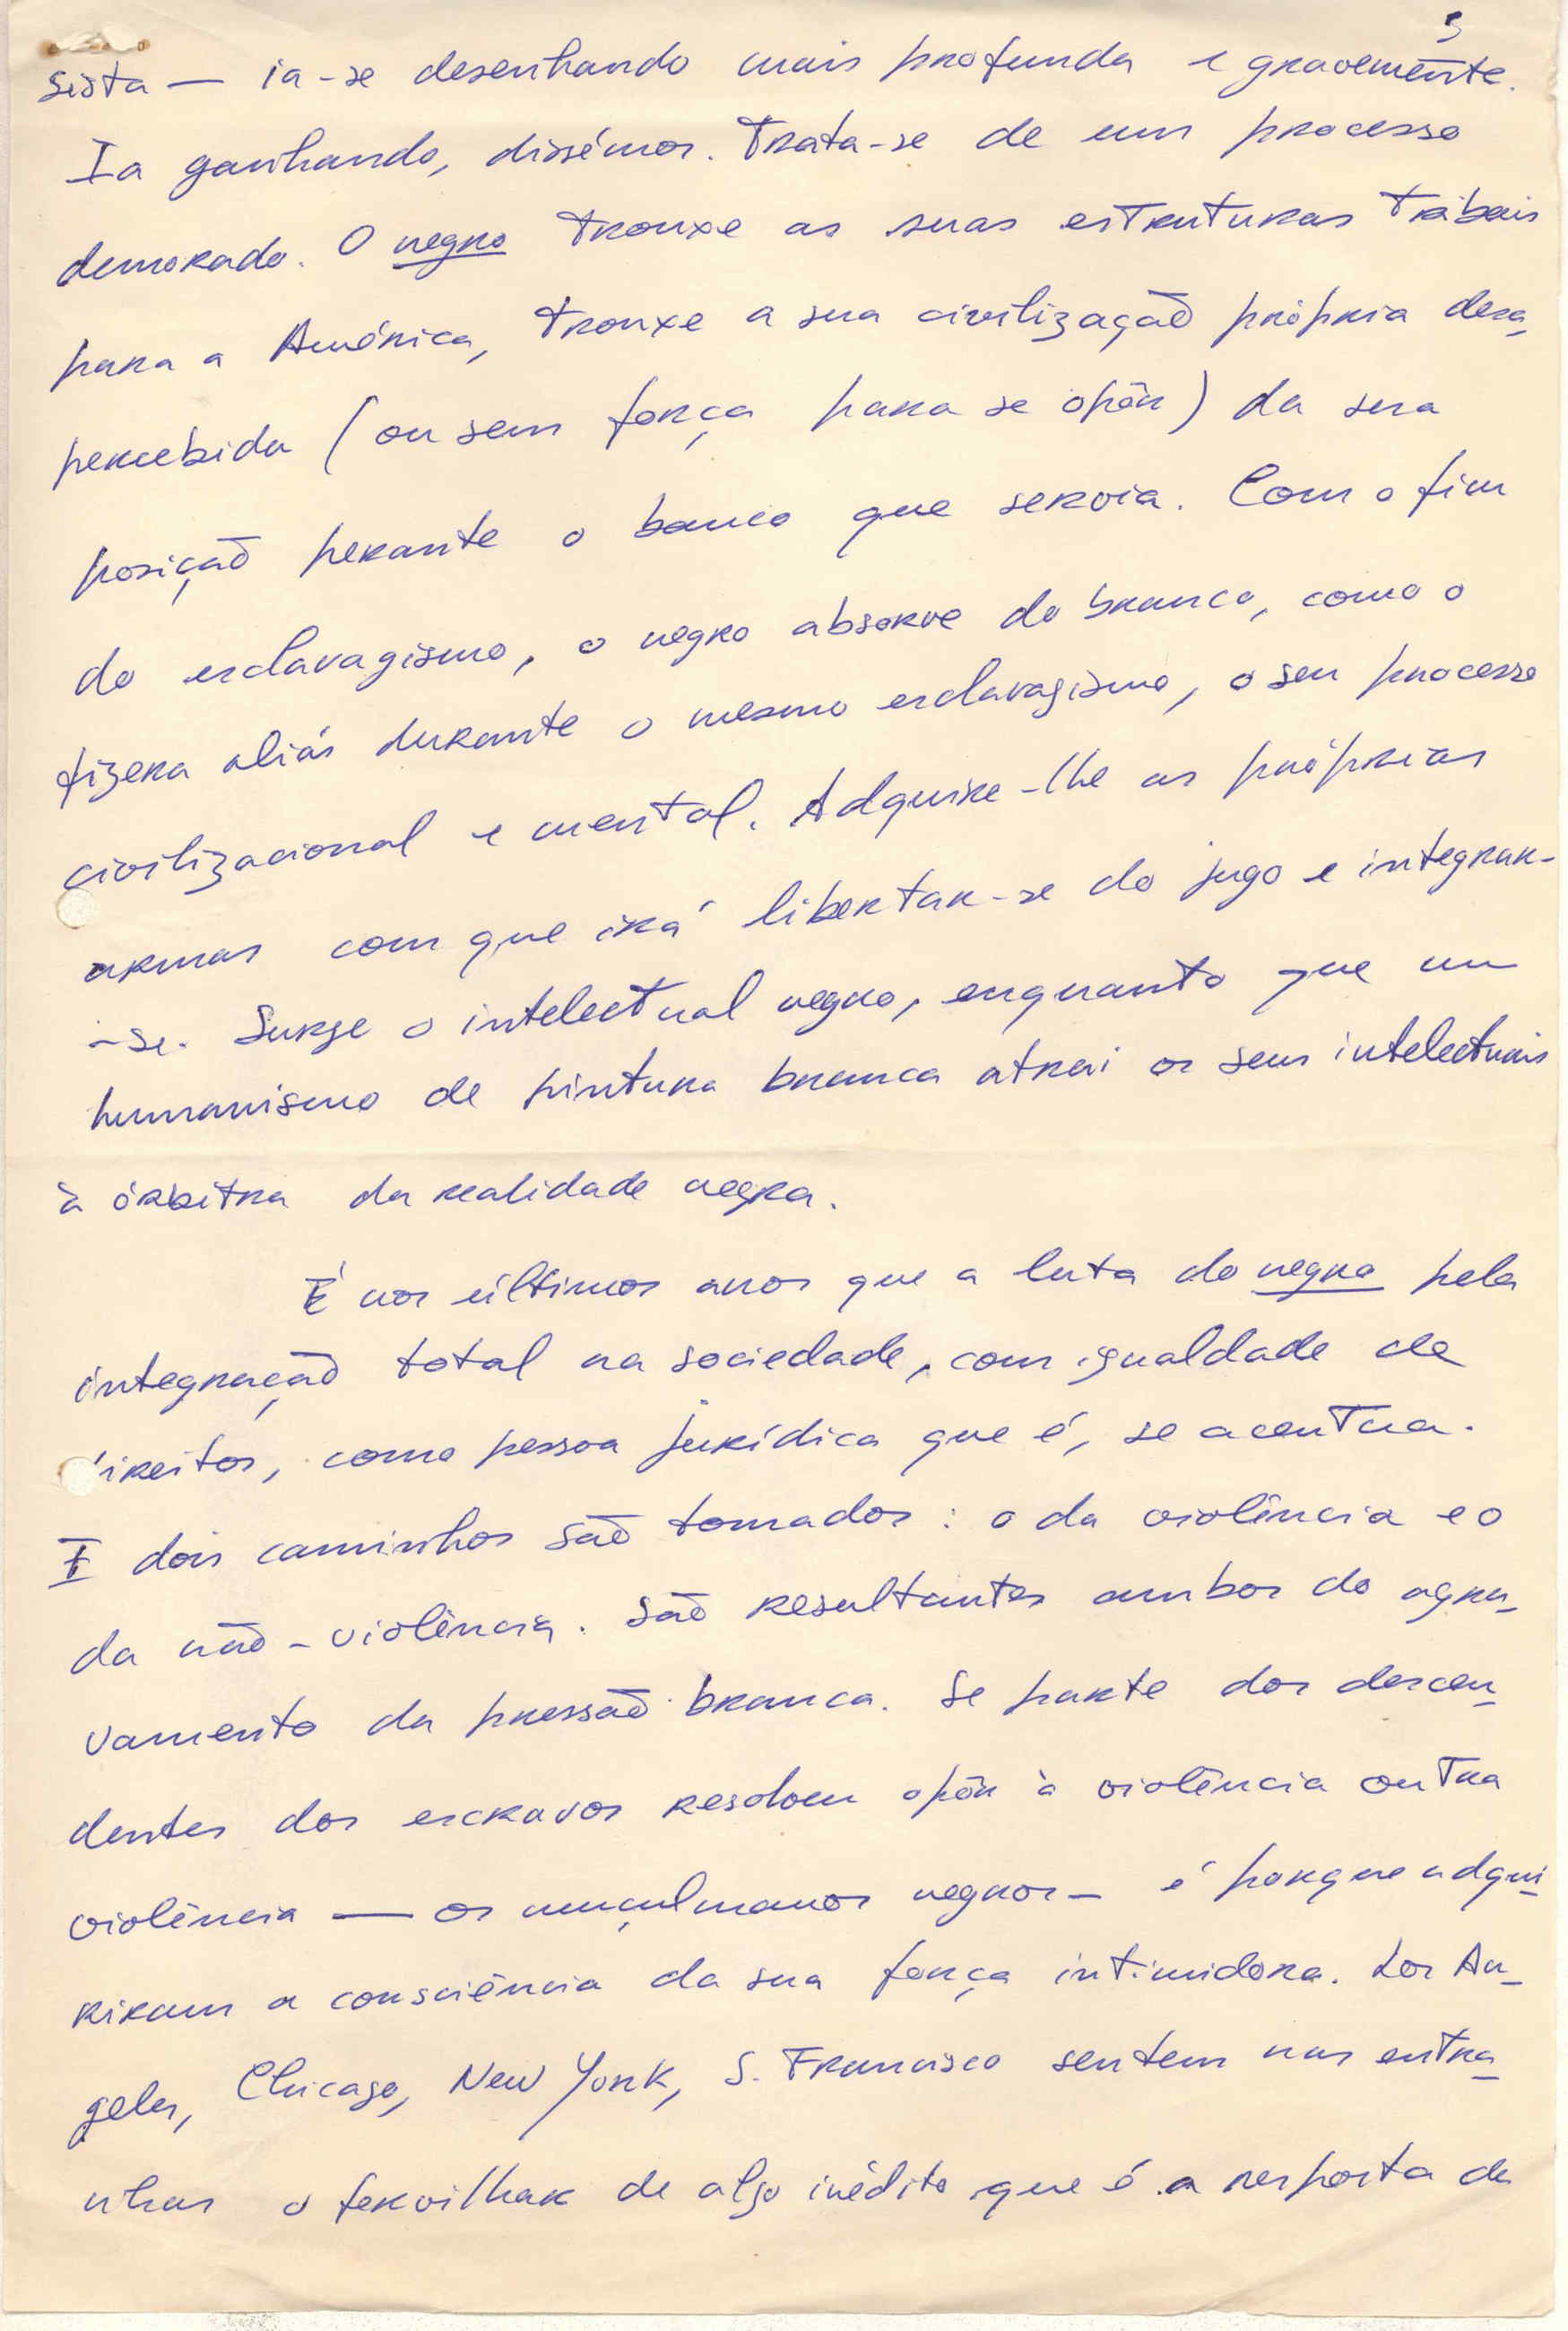 3
sista — ia-se desenhando mais profunda e gravemente.
Ia ganhando, dissémos. Trata-se de um processo
demorado. O negro trouxe as suas estruturas tribais
para a América, trouxe a sua civilização própria desa-
percebida (ou sem força para se opôr) da sua
posição perante o banco que servia. Com o fim
do esclavagismo, o negro absorve do branco, como o
fizera aliás durante o mesmo esclavagismo, o seu processo
civilizacional e mental. Adquire-lhe as próprias
armas com que irá libertar-se do jugo e integrar-
-se. Surge o intelectual negro, enquanto que um
humanismo de pintura branca atrai os seus intelectuais
à órbitra da realidade negra.
É nos últimos anos que a luta do negro pela
integração total na sociedade, com igualdade de
direitos, como pessoa jurídica que é, se acentua.
E dois caminhos são tomados: o da violência e o
da não-violência. São resultantes ambos do agra-
vamento da pressão branca. Se parte dos descen-
dentes dos escravos resolveu opôr à violência outra
violência — os muçulmanos negros — é porque adqui-
riram a consciência da sua força intimidora. Los An-
geles, Chicago, New York, S. Francisco sentem nas entra-
nhas o fervilhar de algo inédito que é a resposta da